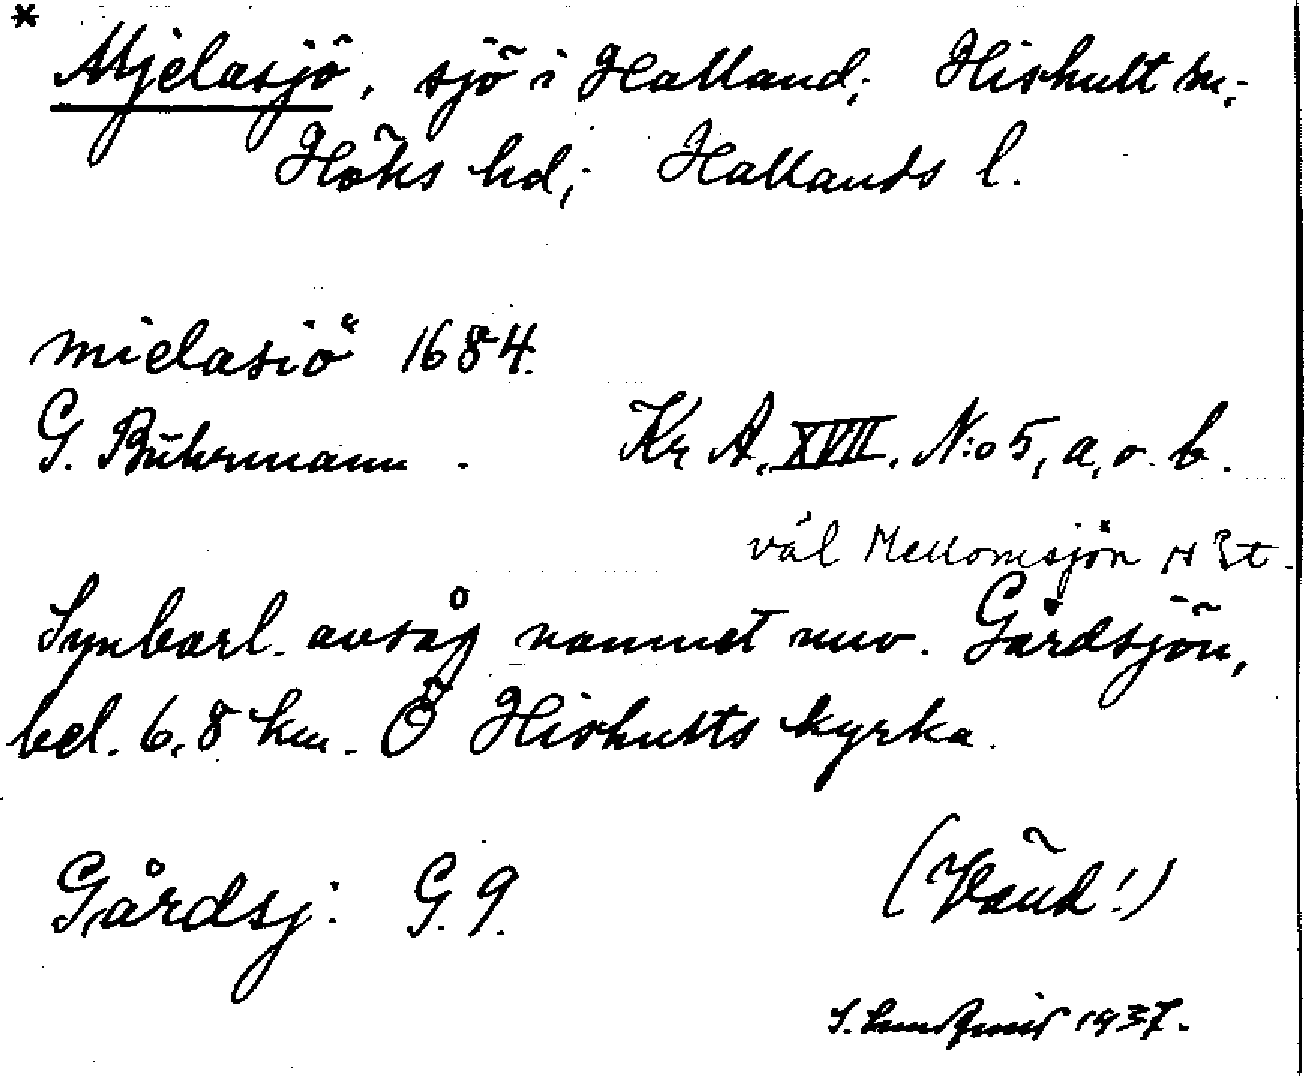 *
Mjelasjö, sjö i Halland; Hishult sn;
Höks hd; Hallands l.
mielasiö 1684.
G. Buhrmann. Kr A. XVII. N:o 5, a, o. b.
väl Mellomsjön
Synbarl. avsåg namnet nuv. Gårdsjön,
bel. 6,8 km. Ö Hishults kyrka.
Gårdsj: G. 9.
(Vänd!)
S. Lundqvist 1937.